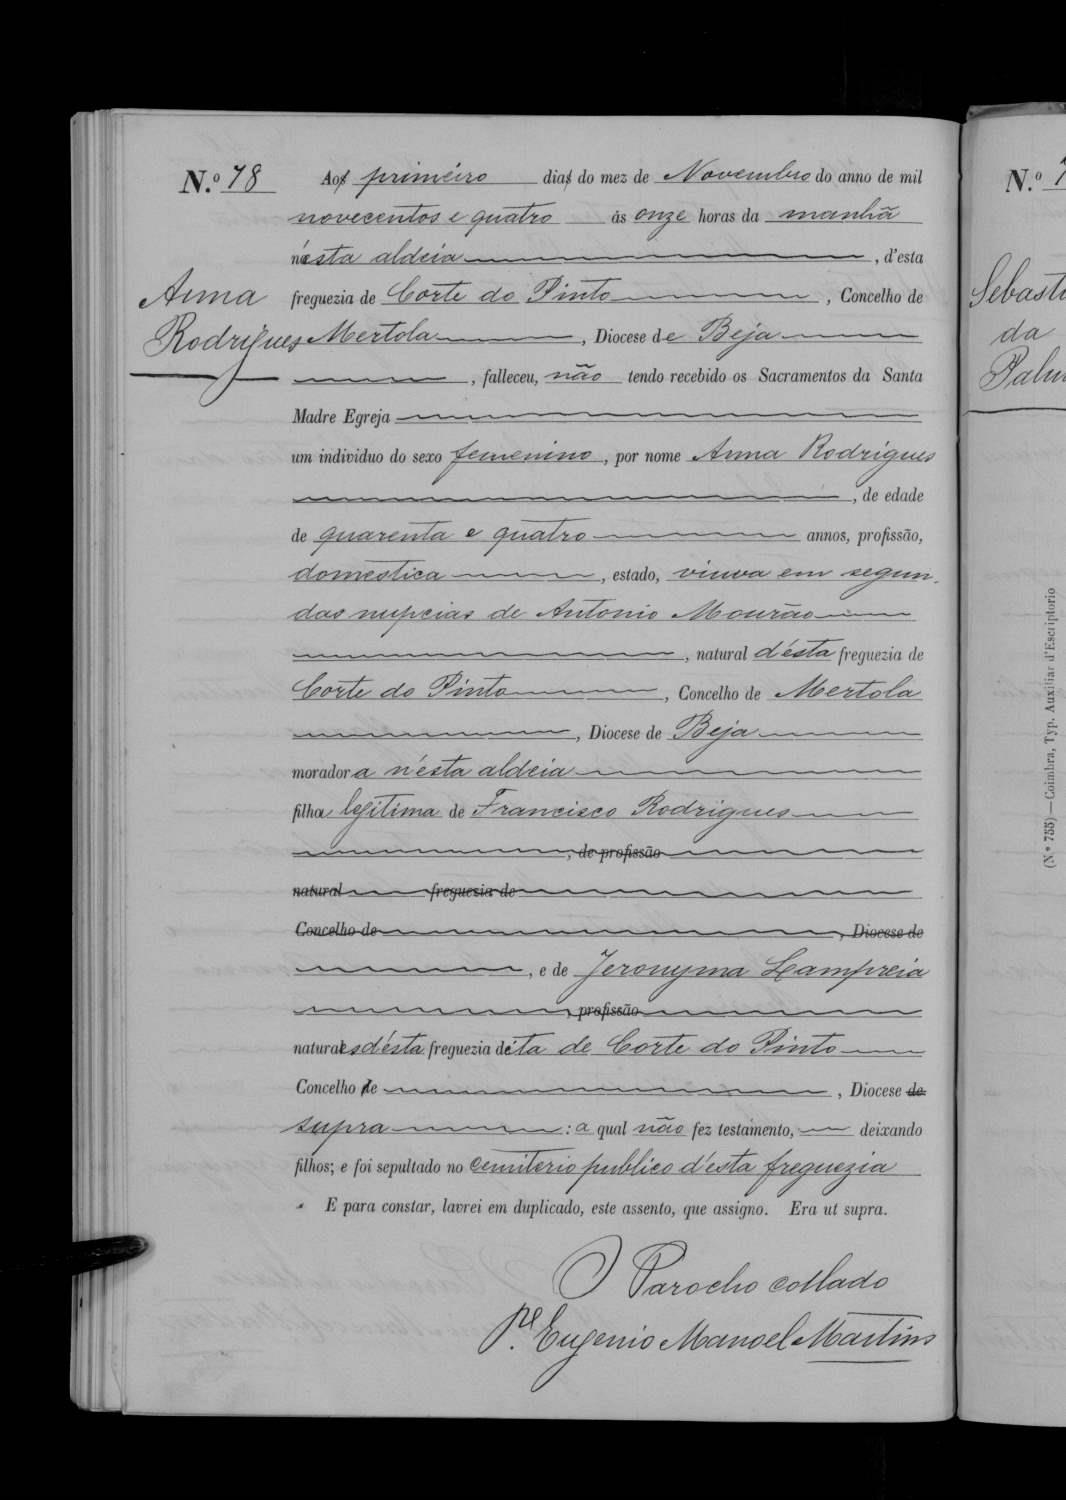 N.º 78 Aos primeiro dias do mez de Novembro do anno de mil
novecentos e quatro ás onze horas da manhã
n'esta aldeia , d'esta
Anna freguezia de Corte do Pinto , Concelho de
Rodrigues Mertola , Diocese de Beja
, falleceu, não tendo recebido os Sacramentos da Santa
Madre Egreja
um individuo do sexo femenino, por nome Anna Rodrigues
, de edade
de quarenta e quatro annos, profissão,
domestica , estado, viuva em segun-
das nupcias de Antonio Mourão
, natural d'ésta freguezia de
Corte do Pinto , Concelho de Mertola
, Diocese de Beja
moradora n'ésta aldeia
filha legitima de Francisco Rodrigues
, de profissão
natural freguezia de
Concelho de , Diocese de
, e de Jeronyma Lampreia
, profissão
naturaes d'ésta freguezia dita de Corte do Pinto
Concelho de , Diocese de
supra : a qual não fez testamento, deixando
filhos; e foi sepultado no cemiterio publico d'ésta freguezia
E para constar, lavrei em duplicado, este assento, que assigno. Era ut supra.
O Parocho collado
P.e Eugenio Manoel Martins
N.º
Sebasti
da
Palm
(N.º 755)—Coimbra, Typ. Auxiliar d'Escriptorio